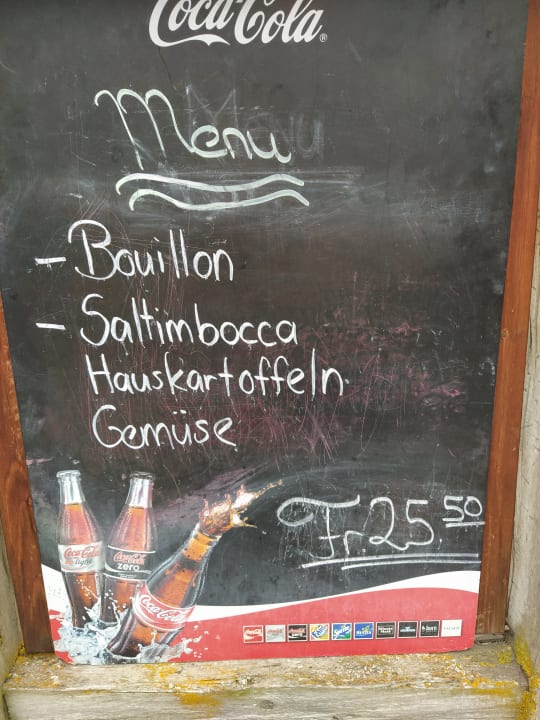 Coca-Cola
Menu
- Bouillon
- Saltimbocca
Hauskartoffeln
Gemüse
Fr. 25.50
Coca-Cola
light
Coca-Cola
zero
Coca-Cola